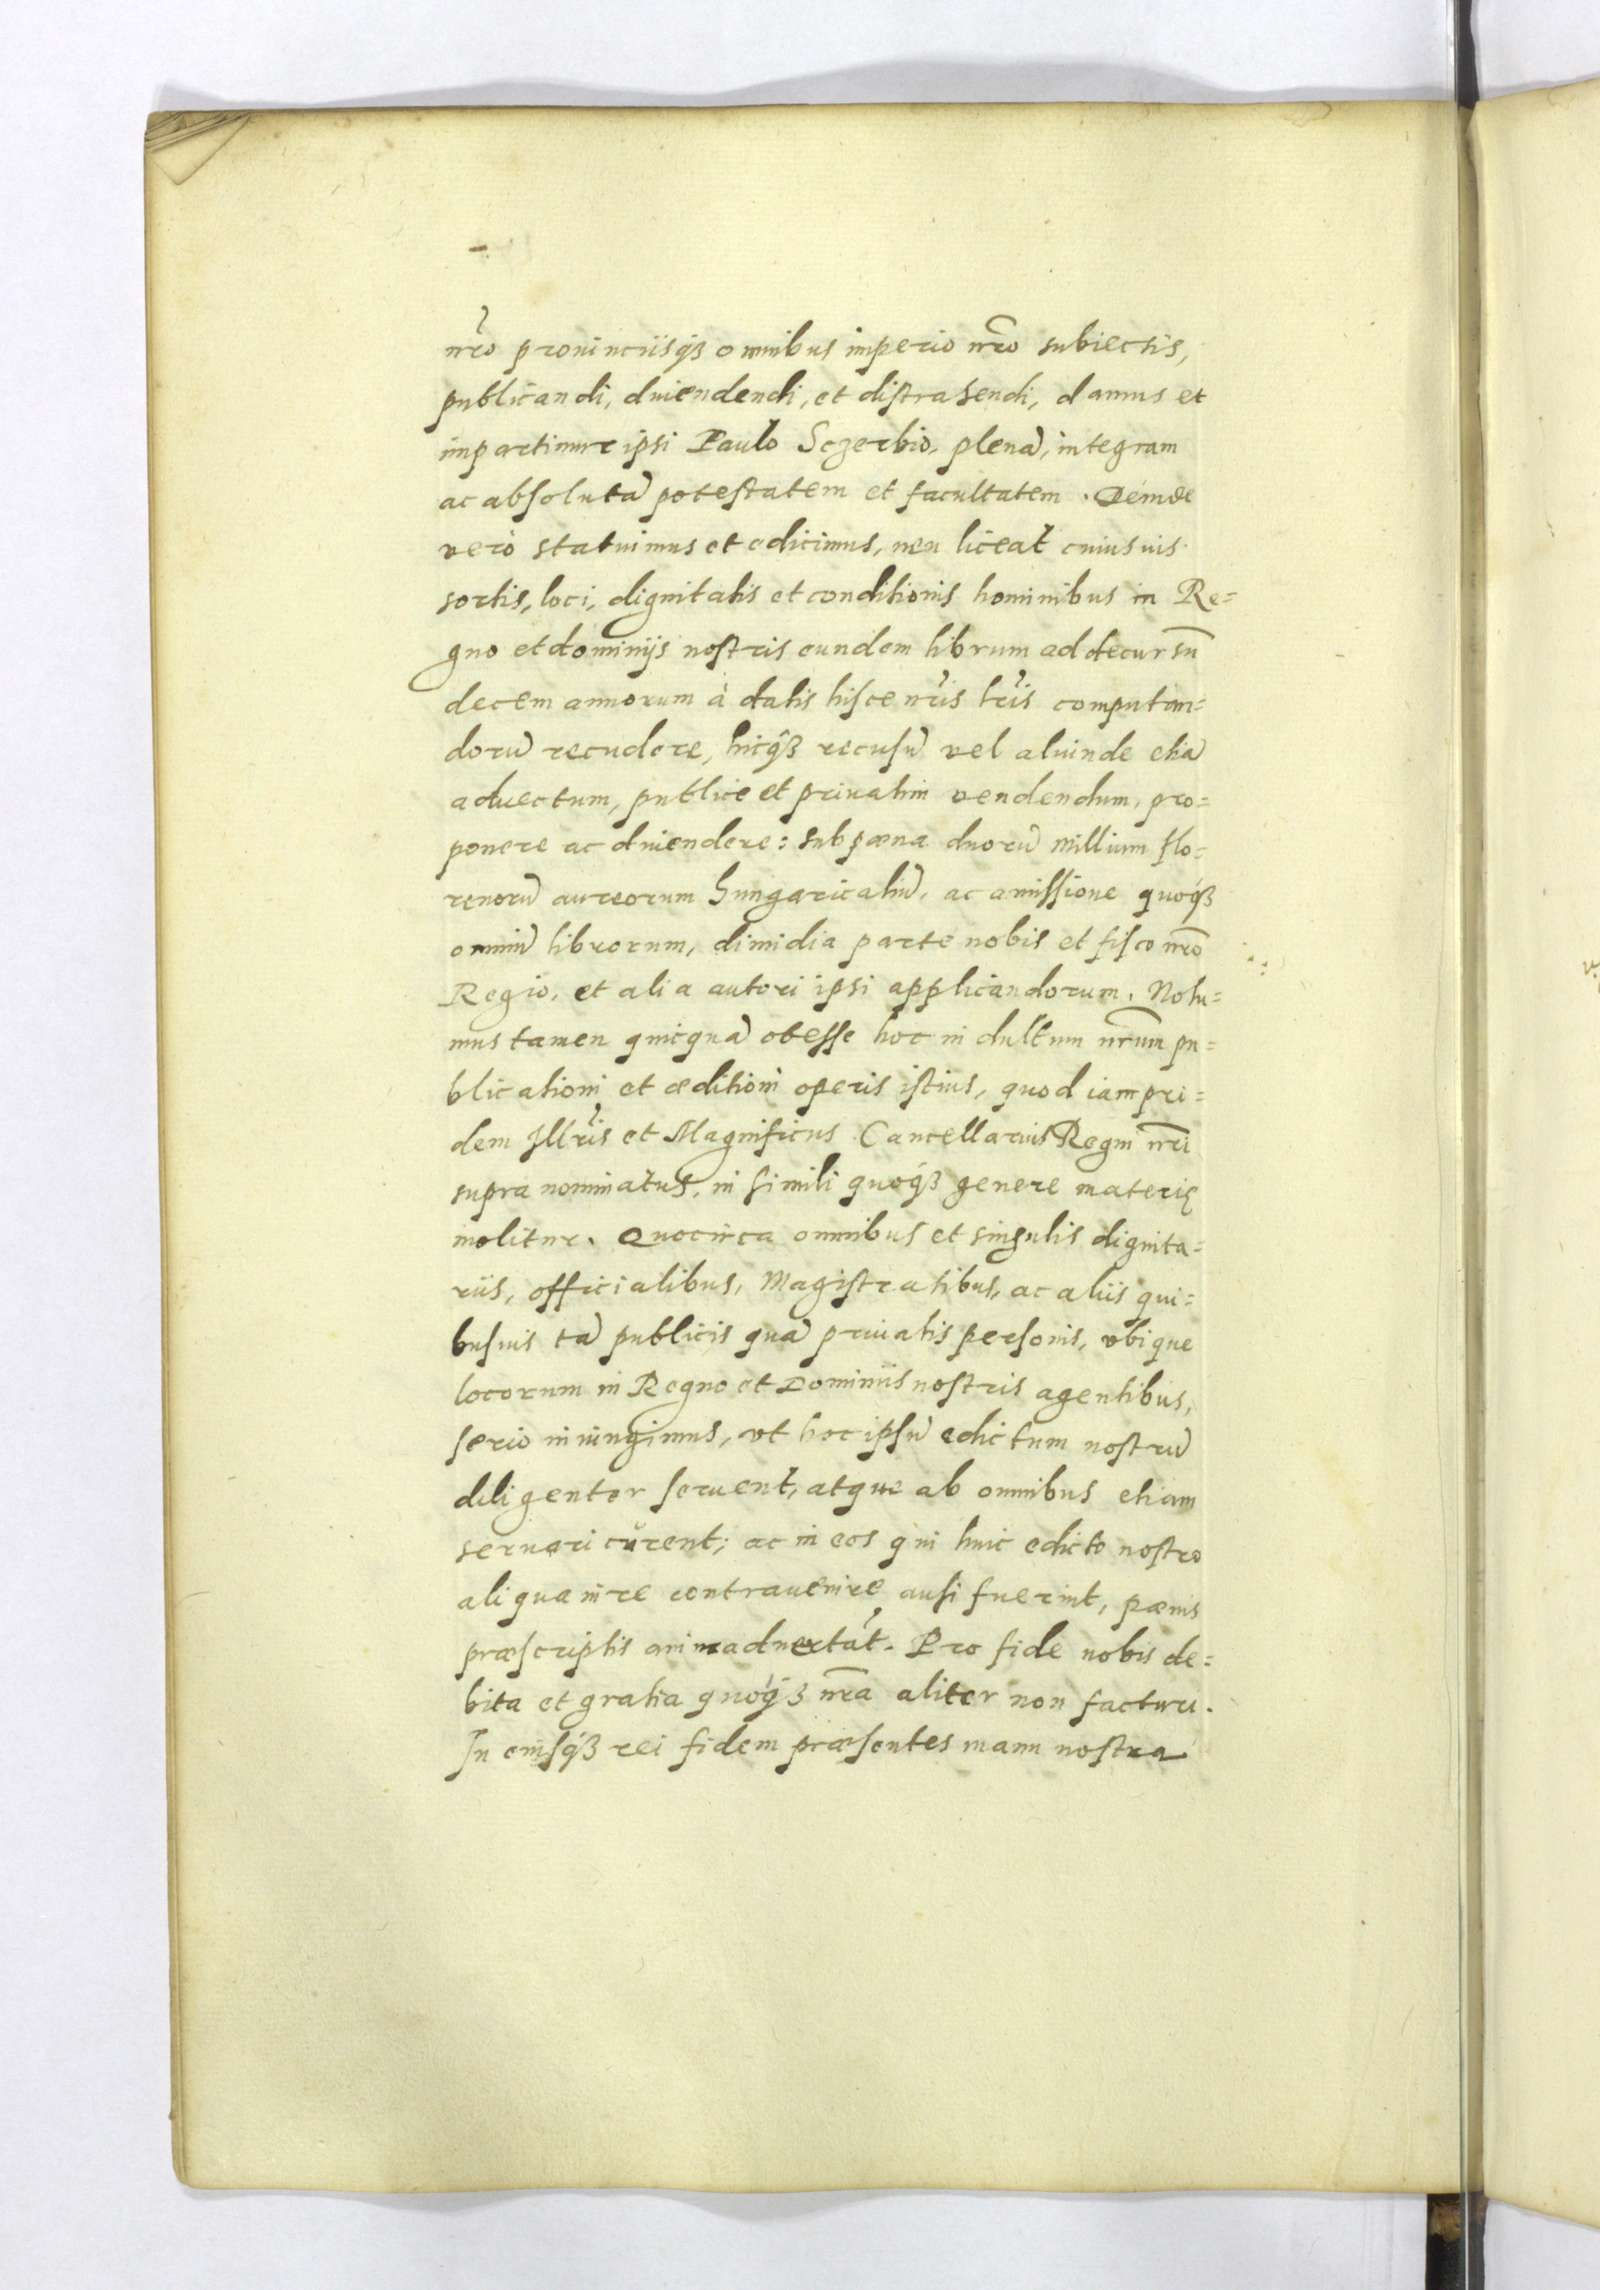 nr̃o prouincijsq́ꝫ omnibus imperio nr̃o subiectis,
publicandi, diuendendi, et distrahendi, damus et
impartimur ipsi Paulo Sczerbio, plenã, integram
ac absolutã potestatem et facultatem. Deinde
vero statuimus et edicimus, neu liceat cuiusuis
sortis, loci, dignitatis et conditionis hominibus in Re=
gno et dominijs nostris eundem librum ad decursũ
decem annorum à datis hisce nr̃is lr̃is computan=
dorũ recudere, hicq́ꝫ recusũ vel aliunde etiã
aduectum, publice et priuatim vendendum, pro=
ponere ac diuendere: sub pæna duorũ millium flo=
renorũ aureorum hungaricaliũ, ac amissione quoq́ꝫ
omniũ librorum, dimidia parte nobis et fisco nr̃o
Regio, et alia autori ipsi applicandorum. Nolu=
mus tamen quicquã obesse hoc indultum nr̃um pu=
blicationi et æditioni operis istius, quod iam pri=
dem Illr̃is et Magnificus Cancellarius Regni nr̃i
supra nominatus, in simili quoq́ꝫ genere materię
molitur. Quocirca omnibus et singulis dignita=
riis, officialibus, Magistratibus, ac aliis qui=
busuis tã publicis quã priuatis personis, vbique
locorum in Regno et Dominiis nostris agentibus,
serio iniungimus, vt hoc ipsũ edictum nostrũ
diligenter seruent, atque ab omnibus etiam
seruari curent; ac in eos qui huic edicto nostro
aliqua in re contrauenire ausi fuerint, pænis
præscriptis animaduertãt. Pro fide nobis de=
bita et gratia quoq́ꝫ nr̃a aliter non facturi.
In cuiusq́ꝫ rei fidem præsentes manu nostra